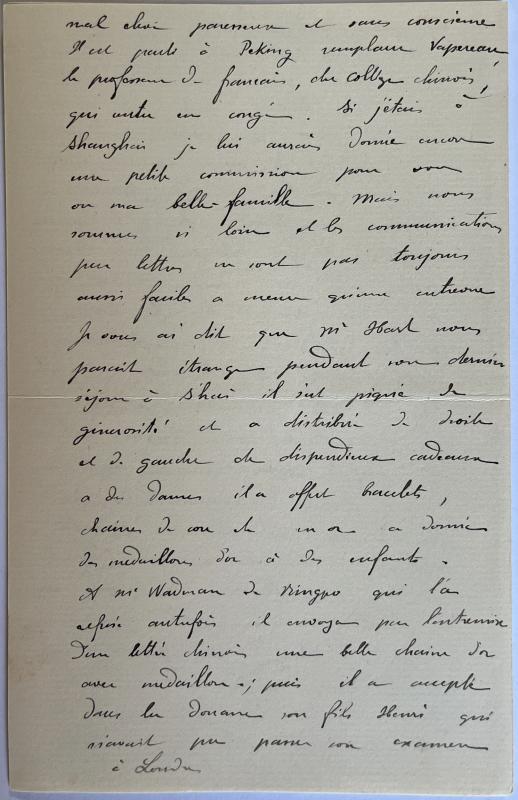 mal élevé paresseux et sans conscience
Il est parti à Peking remplacer Vapereau,
le professeur de francais, du collège chinois,
qui entre en congé. Si j'étais à
Shanghai je lui aurais donné encore
une petite commission pour vous
ou ma belle-famille. Mais nous
sommes si loin et les communications
par lettres ne sont pas toujours
aussi faciles a mener qu'une entrevue
Je vous ai dit que Mr Hart nous
parait étrange pendant son dernier
séjour à S'hai il s'est piqué de
générosité et a distribué de droite
et de gauche de dispendieux cadeaux
a des dames il a offert bracelets,
chaines de cou etc en or a donné
des medaillons d'or à des enfants.
A Mr Wadman de Ningpo qui l'a
refusé autrefois il envoya par l'entremise
d'un lettré chinois une belle chaine d'or
avec medaillon ; puis il a accepté
dans les Douanes son fils Henri qui
n'avait pu passer son examen
à Londres